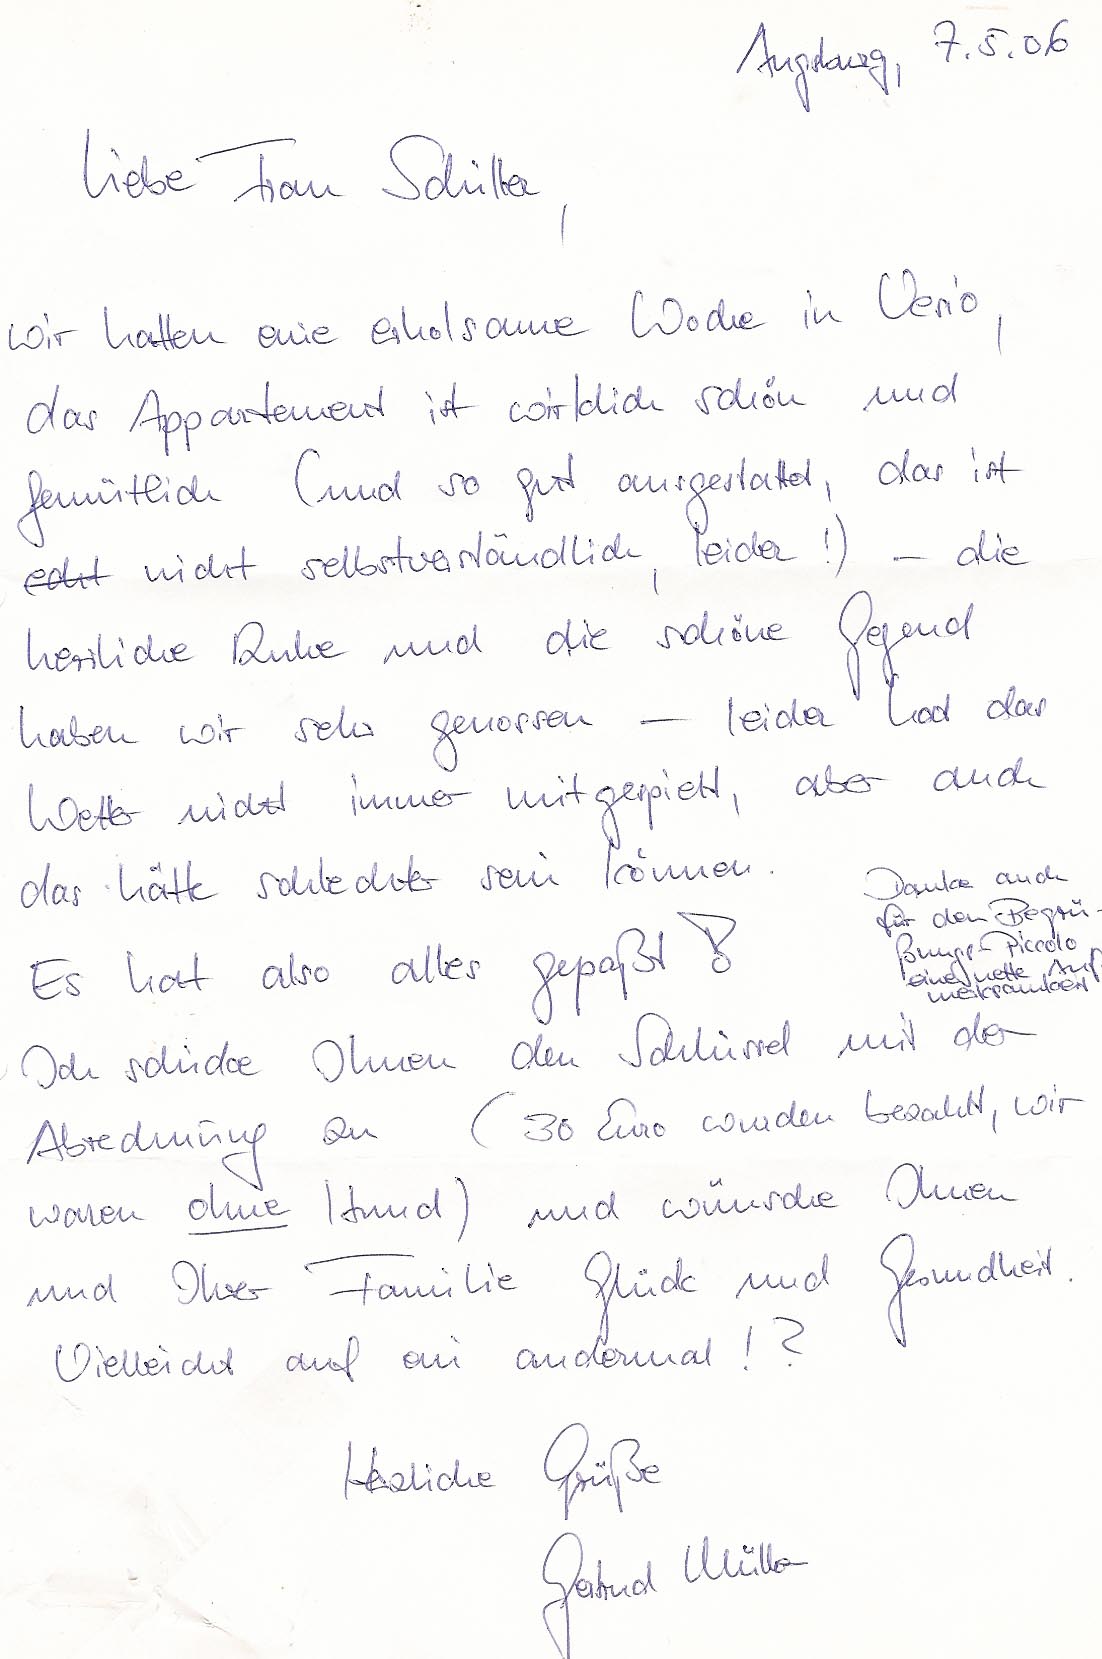 Augsburg, 7.5.06
Liebe Frau Schüller,
wir hatten eine erholsame Woche in Vesio,
das Appartement ist wirklich schön und
gemütlich (und so gut ausgestattet, das ist
echt nicht selbstverständlich, leider!) – die
herrliche Ruhe und die schöne Gegend
haben wir sehr genossen – leider hat das
Wetter nicht immer mitgespielt, aber auch
das hätte schlechter sein können.
Es hat also alles gepaßt!
Danke auch
für den Begrü-
ßungs-Piccolo
eine nette Auf-
merksamkeit
Ich schicke Ihnen den Schlüssel mit der
Abrechnung zu (30 Euro wurden bezahlt, wir
waren ohne Hund) und wünsche Ihnen
und Ihrer Familie Glück und Gesundheit.
Vielleicht auf ein andermal!?
Herzliche Grüße
Gertrud Müller